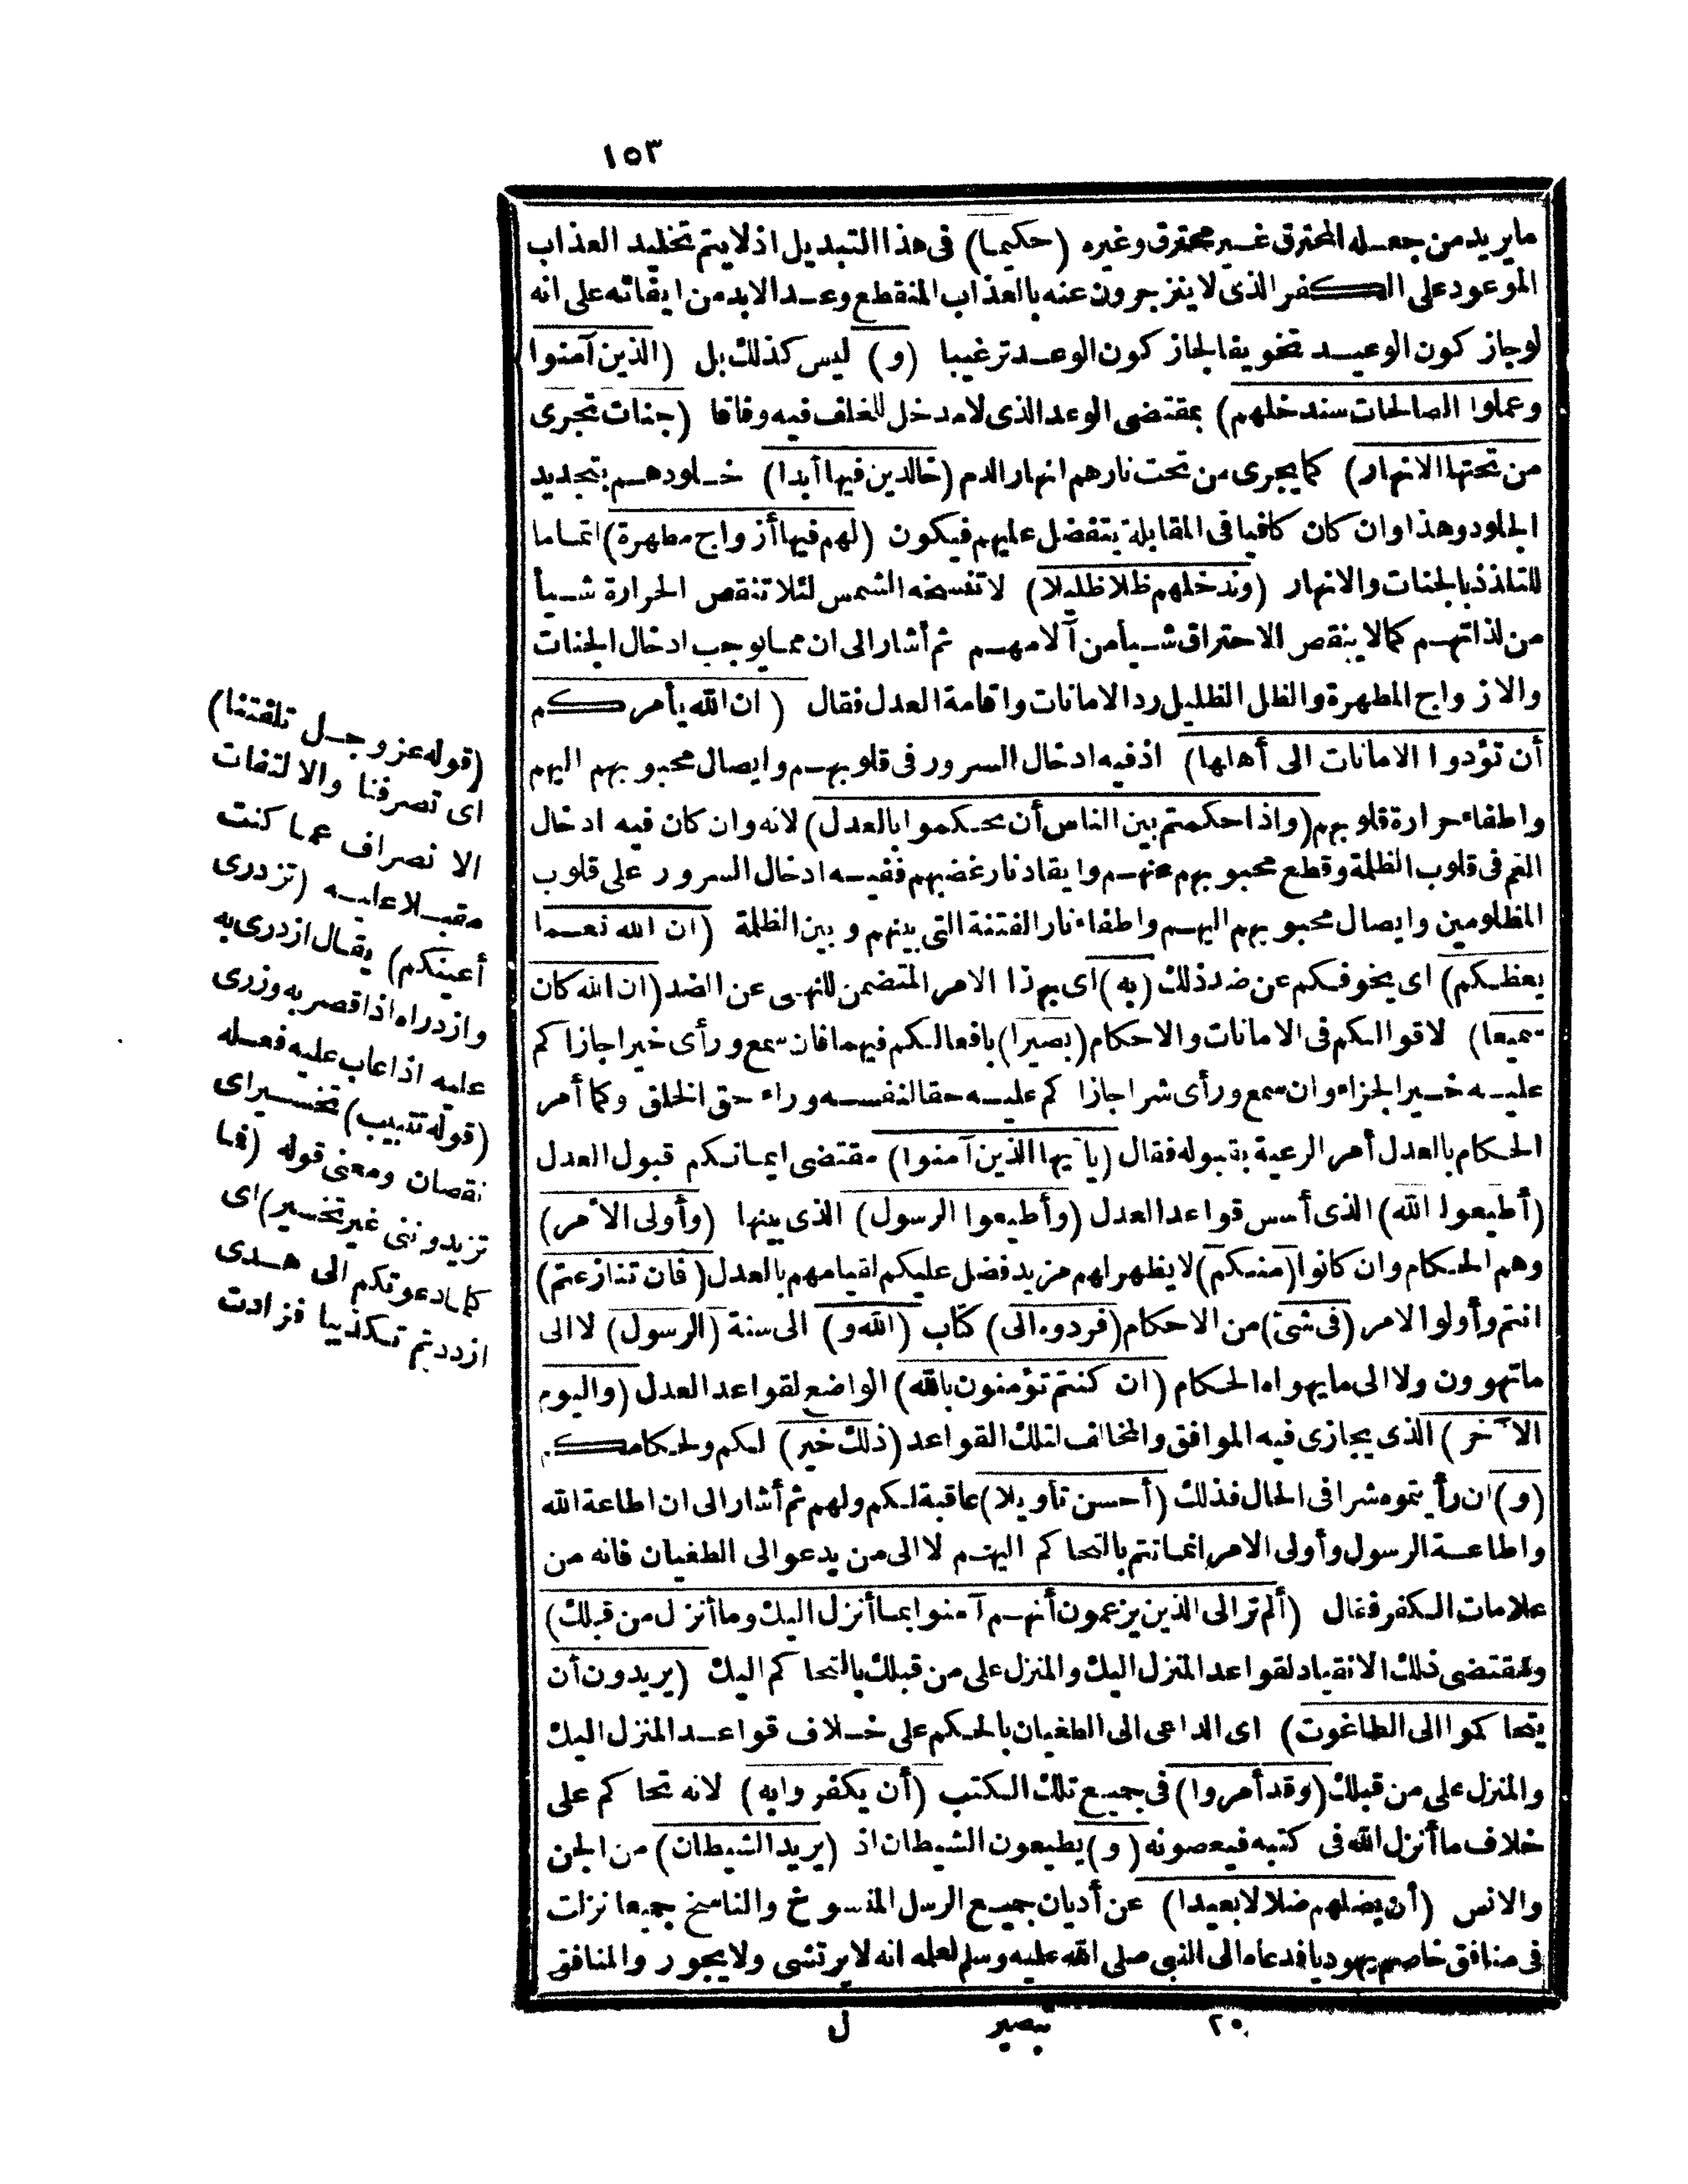 ١٥٣
ما يريد من جعله المحترق غير محترق وغيره (حكيما) فى هذا التبديل اذ لا يتم تخليد العذاب
الموعود على الكفر الذى لا ينزجرون عنه بالعذاب المنقطع وعد الابد من ايقائه على انه
لو جاز كون الوعيد تخويفا لجاز كون الوعد ترغيبا (و) ليس كذلك بل (الذين آمنوا
وعملوا الصالحات سندخلهم) بمقتضى الوعد الذى لا مدخل للخلف فيه وفاقا (جنات تجرى
من تحتها الانهار) كما يجرى من تحت نارهم انهار الدم (خالدين فيها أبدا) خلودهم بتجديد
الجلود وهذا وان كان كافيا فى المقابلة يتفضل عليهم فيكون (لهم فيها أزواج مطهرة) اتماما
للتلذذ بالجنات والانهار (وندخلهم ظلا ظليلا) لا تنسخه الشمس لئلا تنقص الحرارة شيأ
من لذاتهم كما لا ينقص الاحتراق شيأ من آلامهم ثم أشار الى ان مما يوجب ادخال الجنات
والازواج المطهرة والظل الظليل رد الامانات واقامة العدل فقال (ان الله يأمركم
أن تؤدوا الامانات الى أهلها) اذ فيه ادخال السرور فى قلوبهم وايصال محبوبهم اليهم
واطفاء حرارة قلوبهم (واذا حكمتم بين الناس أن تحكموا بالعدل) لانه وان كان فيه ادخال
الغم فى قلوب الظلمة وقطع محبوبهم عنهم وايقاد نار غضبهم ففيه ادخال السرور على قلوب
المظلومين وايصال محبوبهم اليهم واطفاء نار الفتنة التى بينهم وبين الظلمة (ان الله نعما
يعظكم) اى يخوفكم عن ضد ذلك (به) اى بهذا الامر المتضمن للنهى عن الضد (ان الله كان
سميعا) لاقوالكم فى الامانات والاحكام (بصيرا) بافعالكم فيهما فان سمع ورأى خيرا جازاكم
عليه خير الجزاء وان سمع ورأى شرا جازاكم عليه حقا لنفسه وراء حق الخلق وكما أمر
الحكام بالعدل أمر الرعية بقبوله فقال (يا أيها الذين آمنوا) مقتضى ايمانكم قبول العدل
(أطيعوا الله) الذى أسس قواعد العدل (وأطيعوا الرسول) الذى بينها (وأولى الأمر)
وهم الحكام وان كانوا (منكم) لا يظهر لهم مزيد فضل عليكم لقيامهم بالعدل (فان تنازعتم)
انتم وأولو الامر (فى شئ) من الاحكام (فردوه الى) كتاب (الله و) الى سنة (الرسول) لا الى
ما تهوون ولا الى ما يهواه الحكام (ان كنتم تؤمنون بالله) الواضع لقواعد العدل (واليوم
الآخر) الذى يجازى فيه الموافق والمخالف لتلك القواعد (ذلك خير) لكم ولحكامكم
(و) ان رأيتموه شرا فى الحال فذلك (أحسن تأويلا) عاقبة لكم ولهم ثم أشار الى ان اطاعة الله
واطاعة الرسول وأولى الامر انما تتم بالتحاكم اليهم لا الى من يدعو الى الطغيان فانه من
علامات الكفر فقال (ألم تر الى الذين يزعمون أنهم آمنوا بما أنزل اليك وما أنزل من قبلك)
ومقتضى ذلك الانقياد لقواعد المنزل اليك والمنزل على من قبلك بالتحاكم اليك (يريدون أن
يتحاكموا الى الطاغوت) اى الداعى الى الطغيان بالحكم على خلاف قواعد المنزل اليك
والمنزل على من قبلك (وقد أمروا) فى جميع تلك الكتب (أن يكفروا به) لانه تحاكم على
خلاف ما أنزل الله فى كتبه فيعصونه (و) يطيعون الشيطان اذ (يريد الشيطان) من الجن
والانس (أن يضلهم ضلالا بعيدا) عن أديان جميع الرسل المنسوخ والناسخ جميعا نزلت
فى منافق خاصم يهوديا فدعاه الى النبى صلى الله عليه وسلم لعلمه انه لا يرتشى ولا يجور والمنافق
(قوله عز وجل تلفتنا)
اى تصرفنا والالتفات
الانصراف عما كنت
مقبلا عليه (تزدرى
أعينكم) يقال ازدرى به
وازدراه اذا قصر به وزرى
عليه اذا عاب عليه فعله
(قوله تتبيب) تخسير اى
نقصان ومعنى قوله (فما
تزيدوننى غير تخسير) اى
كلما دعوتكم الى هدى
ازددتم تكذيبا فزادت
٢٠ تبصير ل